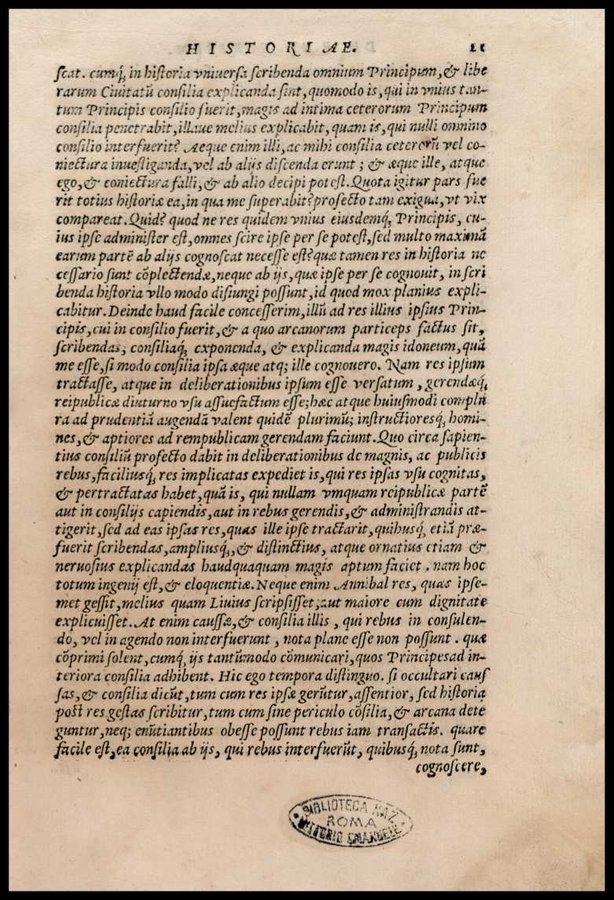 HISTORIAE. 21
scat. cumq́, in historia vniuersa scribenda omnium Principum, & libe
rarum Ciuitatũ consilia explicanda sint, quomodo is, qui in vnius tan-
tum Principis consilio fuerit, magis ad intima ceterorum Principum
consilia penetrabit, illaue melius explicabit, quam is, qui nulli omnino
consilio interfuerit? Aeque enim illi, ac mihi consilia ceterorũ vel co-
niectura inuestiganda, vel ab alijs discenda erunt; & æque ille, atque
ego, & coniectura falli, & ab alio decipi potest. Quota igitur pars fue
rit totius historiæ ea, in qua me superabit? profecto tam exigua, vt vix
compareat. Quid? quod ne res quidem vnius eiusdemq́, Principis, cu-
ius ipse administer est, omnes scire ipse per se potest, sed multo maximã
earum partẽ ab alijs cognoscat necesse est? quæ tamen res in historia ne
cessario sunt cõplectendæ, neque ab ijs, quæ ipse per se cognouit, in scri
benda historia vllo modo disiungi possunt, id quod mox planius expli-
cabitur. Deinde haud facile concesserim, illũ ad res illius ipsius Prin-
cipis, cui in consilio fuerit, & a quo arcanorum particeps factus sit,
scribendas, consiliaq́, exponenda, & explicanda magis idoneum, quã
me esse, si modo consilia ipsa æque atq; ille cognouero. Nam res ipsum
tractasse, atque in deliberationibus ipsum esse versatum, gerendæq́,
reipublicæ diuturno vsu assuefactum esse; hæc atque huiusmodi complu
ra ad prudentiã augendã valent quidẽ plurimũ; instructioresq́, homi-
nes, & aptiores ad rempublicam gerendam faciunt. Quo circa sapien-
tius consiliũ profecto dabit in deliberationibus de magnis, ac publicis
rebus, faciliusq́, res implicatas expediet is, qui res ipsas vsu cognitas,
& pertractatas habet, quã is, qui nullam vmquam reipublicæ partẽ
aut in consilijs capiendis, aut in rebus gerendis, & administrandis at-
tigerit, sed ad eas ipsas res, quas ille ipse tractarit, quibusq́, etiã præ-
fuerit scribendas, ampliusq́,, & distinctius, atque ornatius etiam &
neruosius explicandas haudquaquam magis aptum faciet. nam hoc
totum ingenij est, & eloquentiæ. Neque enim Annibal res, quas ipse-
met gessit, melius quam Liuius scripsisset; aut maiore cum dignitate
explicuisset. At enim caussæ, & consilia illis, qui rebus in consulen-
do, vel in agendo non interfuerunt, nota plane esse non possunt. quæ
cõprimi solent, cumq́, ijs tantũmodo cõmunicari, quos Principes ad in-
teriora consilia adhibent. Hic ego tempora distinguo. si occultari caus
sas, & consilia dicũt, tum cum res ipsæ gerũtur, assentior, sed historia
post res gestas scribitur, tum cum sine periculo cõsilia, & arcana dete
guntur, neq; enũtiantibus obesse possunt rebus iam transactis. quare
facile est, ea consilia ab ijs, qui rebus interfuerũt, quibusq́, nota sunt,
cognoscere,
BIBLIOTECA NAZ.
ROMA
VITTORIO EMANUELE